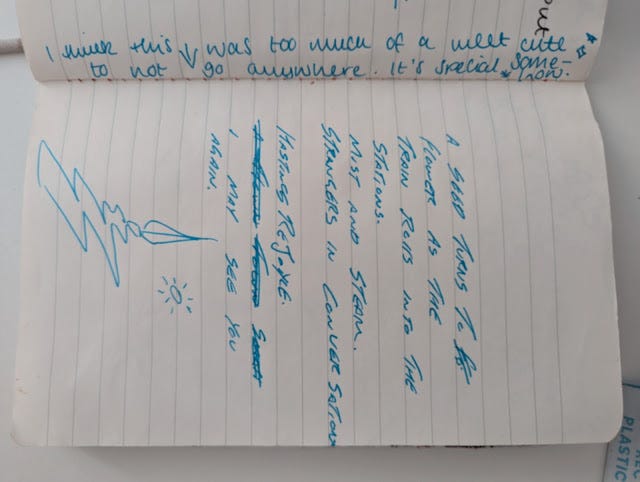 put
I think this ↓ was too much of a meet cute
to not go anywhere. It's special some-
how.
A SEED TURNS TO
FLOWER AS THE
TRAIN ROLLS INTO THE
STATIONS.
MIST AND STEAM.
STRANGERS IN CONVERSATION
HASTING REJOYCE.
I MAY SEE YOU
AGAIN.
PLASTIC